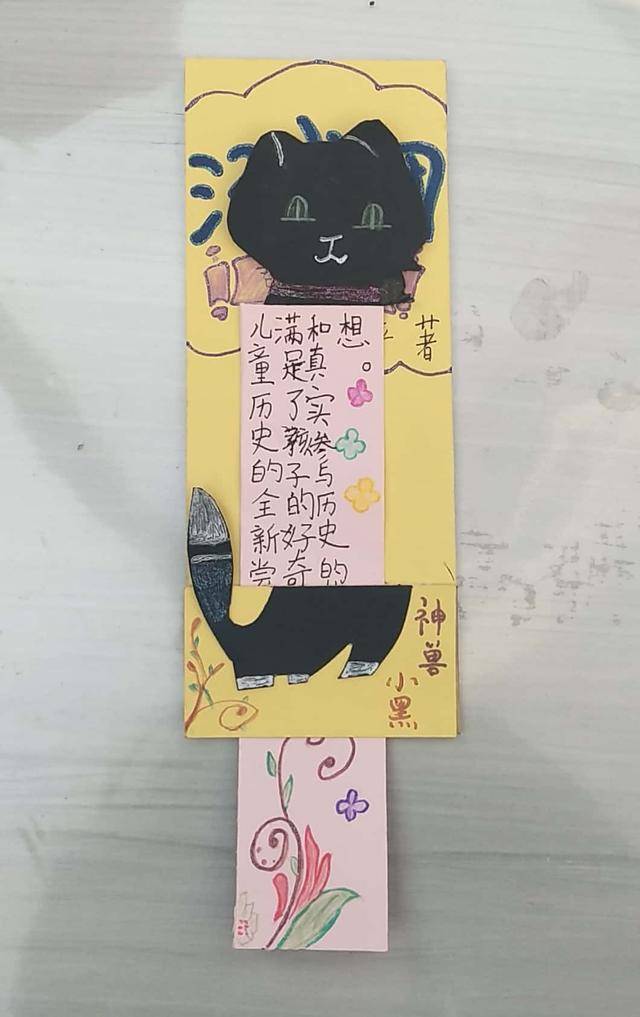 著
儿童历史的全新尝
满足了孩子的好奇
和真实参与历史的
想。
神兽
小黑